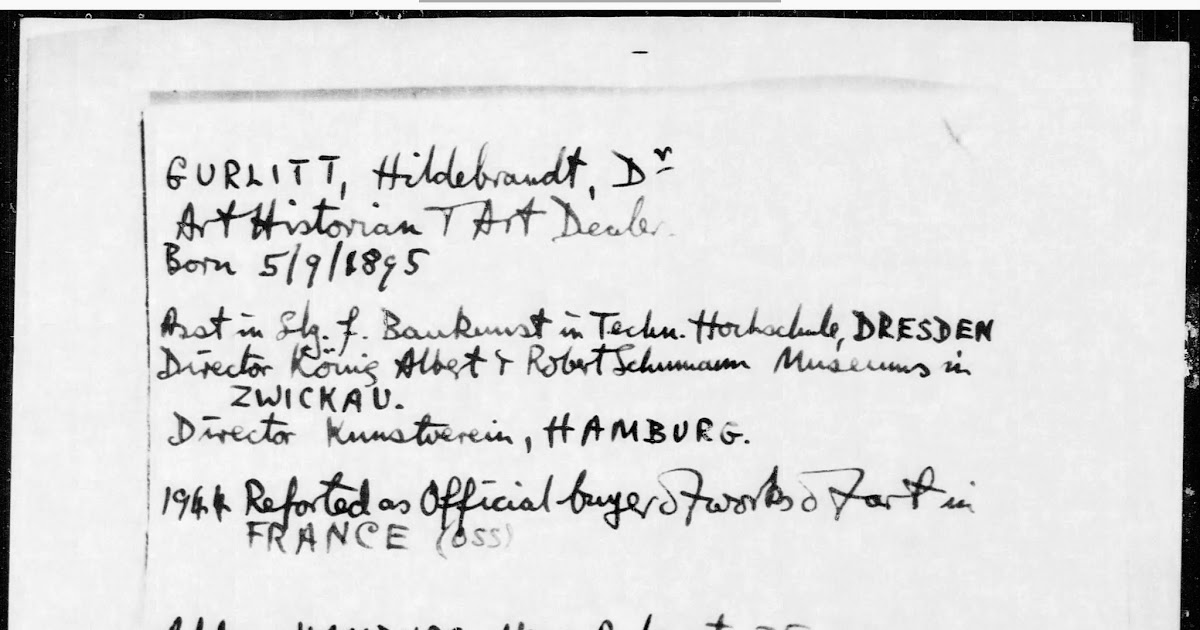 GURLITT, Hildebrandt, Dr
Art Historian & Art Dealer.
Born 5/9/1895
Asst in Slg. f. Baukunst in Techn. Hochschule, DRESDEN
Director König Albert & Robert Schumann Museums in
ZWICKAU.
Director Kunstverein, HAMBURG.
1944 Reported as Official buyer of works of art in
FRANCE (OSS)